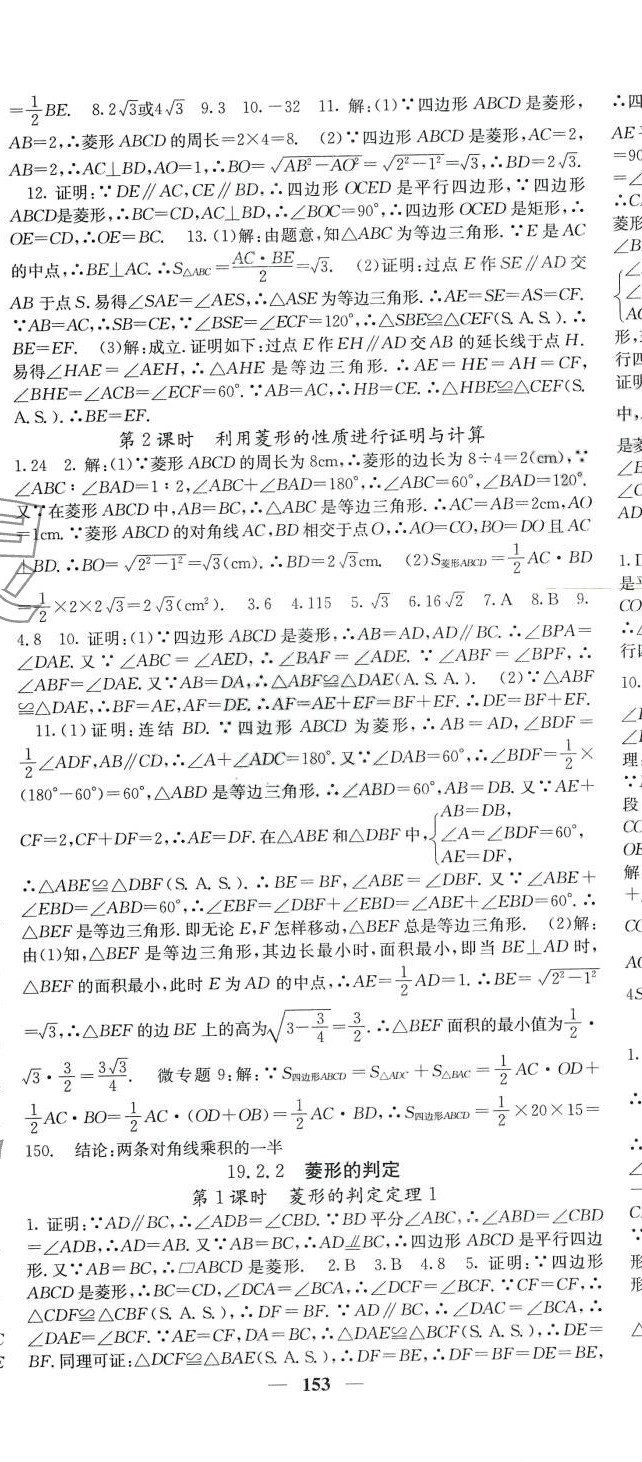 =1/2 BE.　8.2√3或4√3　9.3　10.−32　11. 解:(1)∵四边形 ABCD 是菱形,
AB=2,∴菱形 ABCD 的周长=2×4=8.　(2)∵四边形 ABCD 是菱形,AC=2,
AB=2,∴AC⊥BD,AO=1,∴BO=√(AB²−AO²)=√(2²−1²)=√3,∴BD=2√3.
12. 证明:∵DE∥AC,CE∥BD,∴四边形 OCED 是平行四边形,∵四边形
ABCD是菱形,∴BC=CD,AC⊥BD,∴∠BOC=90°,∴四边形 OCED 是矩形,∴
OE=CD,∴OE=BC.　13.(1)解:由题意,知△ABC 为等边三角形.∵E 是 AC
的中点,∴BE⊥AC.∴S△ABC=AC·BE/2=√3.　(2)证明:过点 E 作 SE∥AD 交
AB 于点 S.易得∠SAE=∠AES,∴△ASE 为等边三角形.∴AE=SE=AS=CF.
∵AB=AC,∴SB=CE,∵∠BSE=∠ECF=120°,∴△SBE≌△CEF(S.A.S.).∴
BE=EF.　(3)解:成立.证明如下:过点 E 作 EH∥AD 交 AB 的延长线于点 H.
易得∠HAE=∠AEH,∴△AHE 是等边三角形.∴AE=HE=AH=CF,
∠BHE=∠ACB=∠ECF=60°.∵AB=AC,∴HB=CE.∴△HBE≌△CEF(S.
A.S.).∴BE=EF.
第 2 课时　利用菱形的性质进行证明与计算
1.24　2. 解:(1)∵菱形 ABCD 的周长为 8cm,∴菱形的边长为 8÷4=2(cm),∵
∠ABC∶∠BAD=1∶2,∠ABC+∠BAD=180°,∴∠ABC=60°,∠BAD=120°.
又∵在菱形 ABCD 中,AB=BC,∴△ABC 是等边三角形.∴AC=AB=2cm,AO
=1cm.∵菱形 ABCD 的对角线 AC,BD 相交于点 O,∴AO=CO,BO=DO 且 AC
⊥BD.∴BO=√(2²−1²)=√3(cm).∴BD=2√3cm.　(2)S菱形ABCD=1/2 AC·BD
=1/2×2×2√3=2√3(cm²).　3.6　4.115　5.√3　6.16√2　7.A　8.B　9.
4.8　10. 证明:(1)∵四边形 ABCD 是菱形,∴AB=AD,AD∥BC.∴∠BPA=
∠DAE.又∵∠ABC=∠AED,∴∠BAF=∠ADE.∵∠ABF=∠BPF,∴
∠ABF=∠DAE.又∵AB=DA,∴△ABF≌△DAE(A.S.A.).　(2)∵△ABF
≌△DAE,∴BF=AE,AF=DE.∴AF=AE+EF=BF+EF.∴DE=BF+EF.
11.(1)证明:连结 BD.∵四边形 ABCD 为菱形,∴AB=AD,∠BDF=
1/2∠ADF,AB∥CD,∴∠A+∠ADC=180°.又∵∠DAB=60°,∴∠BDF=1/2×
(180°−60°)=60°,△ABD 是等边三角形.∴∠ABD=60°,AB=DB.又∵AE+
CF=2,CF+DF=2,∴AE=DF.在△ABE 和△DBF 中,{AB=DB,
∠A=∠BDF=60°,
AE=DF,
∴△ABE≌△DBF(S.A.S.).∴BE=BF,∠ABE=∠DBF.又∵∠ABE+
∠EBD=∠ABD=60°,∴∠EBF=∠DBF+∠EBD=∠ABE+∠EBD=60°.∴
△BEF 是等边三角形.即无论 E,F 怎样移动,△BEF 总是等边三角形.　(2)解:
由(1)知,△BEF 是等边三角形,其边长最小时,面积最小,即当 BE⊥AD 时,
△BEF 的面积最小,此时 E 为 AD 的中点,∴AE=1/2 AD=1.∴BE=√(2²−1²)
=√3,∴△BEF 的边 BE 上的高为√(3−3/4)=3/2.∴△BEF 面积的最小值为1/2·
√3·3/2=3√3/4.　微专题 9:解:∵S四边形ABCD=S△ADC+S△BAC=1/2 AC·OD+
1/2 AC·BO=1/2 AC·(OD+OB)=1/2 AC·BD,∴S四边形ABCD=1/2×20×15=
150.　结论:两条对角线乘积的一半
19.2.2　菱形的判定
第 1 课时　菱形的判定定理 1
1. 证明:∵AD∥BC,∴∠ADB=∠CBD.∵BD 平分∠ABC,∴∠ABD=∠CBD
=∠ADB,∴AD=AB.又∵AB=BC,∴AD⫽BC,∴四边形 ABCD 是平行四边
形.又∵AB=BC,∴□ABCD 是菱形.　2.B　3.B　4.8　5. 证明:∵四边形
ABCD 是菱形,∴BC=CD,∠DCA=∠BCA,∴∠DCF=∠BCF.∵CF=CF,∴
△CDF≌△CBF(S.A.S.),∴DF=BF.∵AD∥BC,∴∠DAC=∠BCA,∴
∠DAE=∠BCF.∵AE=CF,DA=BC,∴△DAE≌△BCF(S.A.S.),∴DE=
BF.同理可证:△DCF≌△BAE(S.A.S.),∴DF=BE,∴DF=BF=DE=BE,
— 153 —